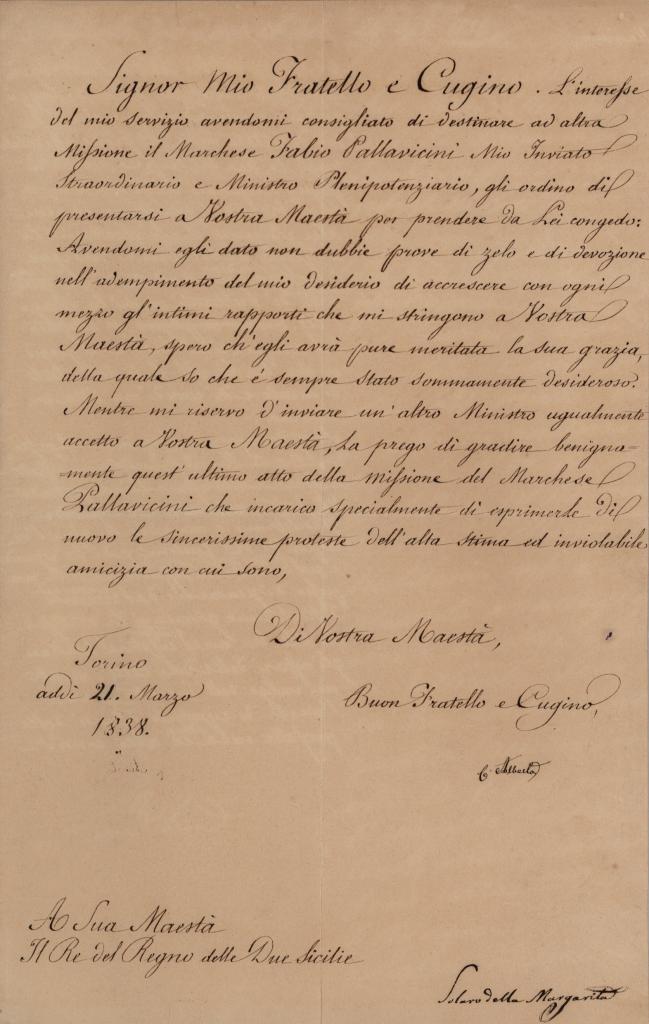 Signor Mio Fratello e Cugino. L'interesse
del mio servizio avendomi consigliato di destinare ad altra
Missione il Marchese Fabio Pallavicini Mio Inviato
Straordinario e Ministro Plenipotenziario, gli ordino di
presentarsi a Vostra Maestà per prendere da Lei congedo:
Avendomi egli dato non dubbie prove di zelo e di devozione
nell'adempimento del mio desiderio di accrescere con ogni
mezzo gl'intimi rapporti che mi stringono a Vostra
Maestà, spero ch'egli avrà pure meritata la sua grazia,
della quale so che é sempre stato sommamente desideroso.
Mentre mi riservo d'inviare un'altro Ministro ugualmente
accetto a Vostra Maestà, La prego di gradire benigna=
=mente quest'ultimo atto della missione del Marchese
Pallavicini che incarico specialmente di esprimerle di
nuovo le sincerissime proteste dell'alta stima ed inviolabile
amicizia con cui sono,
Di Vostra Maestà,
Torino
addi 21. Marzo
1838.
Buon Fratello e Cugino,
C. Alberto
A Sua Maestà
Il Re del Regno delle Due Sicilie
Solaro della Margarita